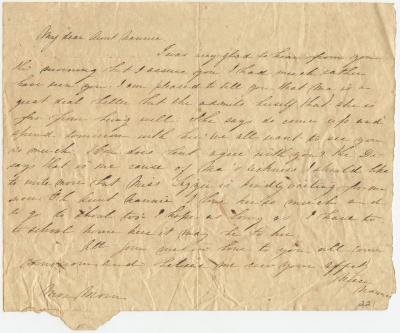 My dear Aunt Nannie
I was very glad to hear from you
this morning but I assure you I had much rather
have seen you. I am pleased to tell you that Ma is a
great deal better but she admits herself that she is
far from being well. She says do come up and
spend tomorrow with her we all want to see you
so much. How does agree with you? the Dr
says that is the cause of Ma's sickness I should like
to write more but Miss Lizzie is waiting for me
now. Oh Aunt Nannie I love her so much and
to go to school too. I hope as long as I have to
to school here it may be to her.
All join me in love to you all come
tomorrow and believe me ever your affect
Niece
Nannie
Mon Morn
221